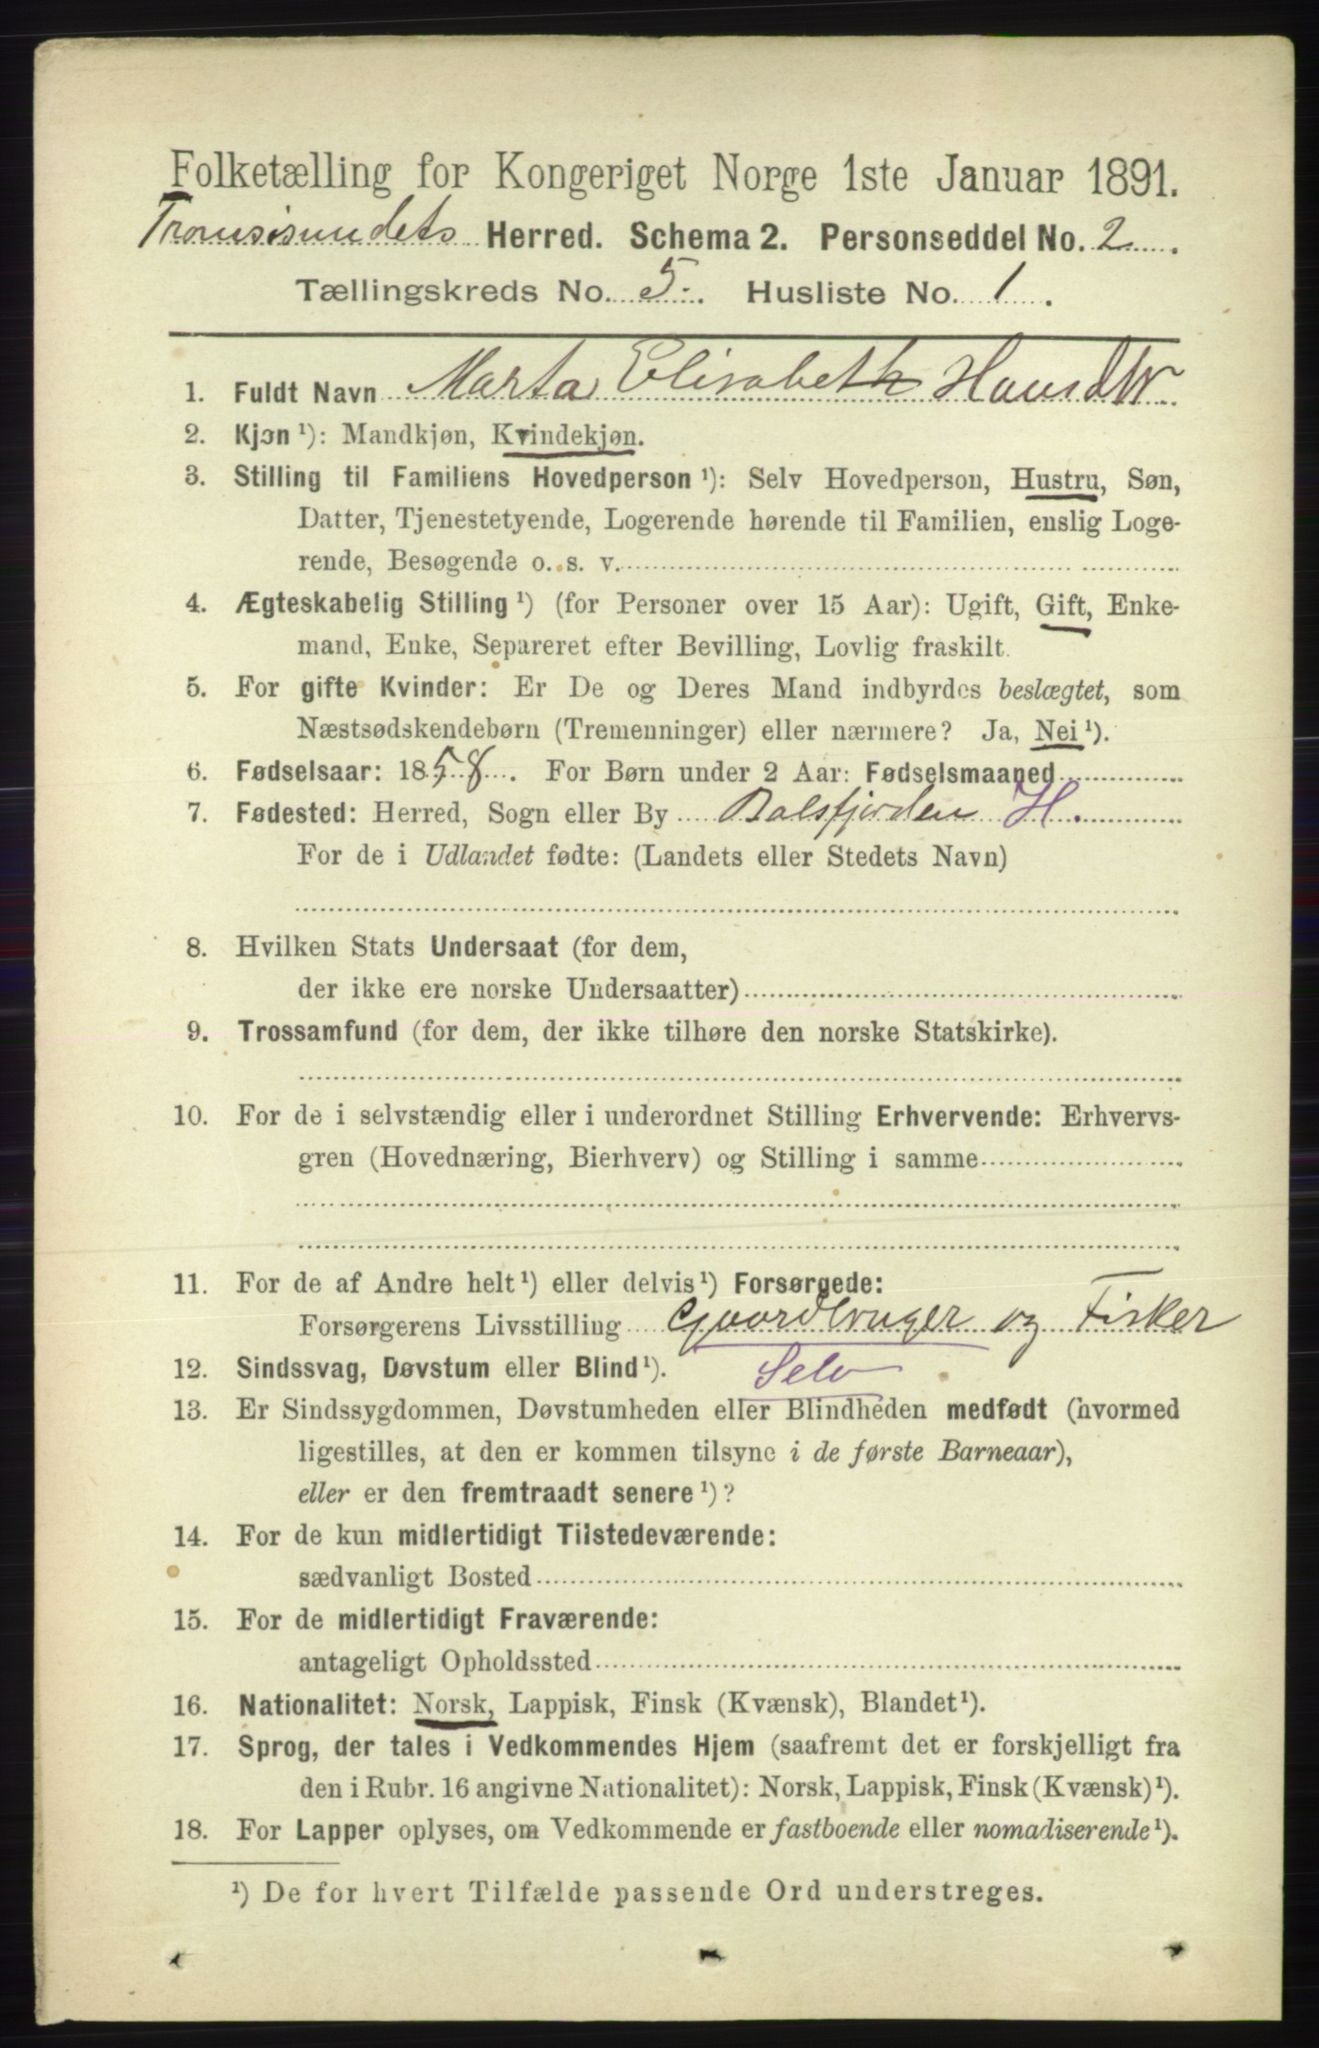 Folketælling for Kongeriget Norge 1ste Januar 1891.
Tromsøsundets Herred. Schema 2. Personseddel No. 2
Tællingskreds No. 5. Husliste No. 1.
1. Fuldt Navn Marta Elisabeth Hansdtr
2. Kjøn ¹): Mandkjøn, Kvindekjøn.
3. Stilling til Familiens Hovedperson ¹): Selv Hovedperson, Hustru, Søn,
Datter, Tjenestetyende, Logerende hørende til Familien, enslig Loge-
rende, Besøgende o. s. v.
4. Ægteskabelig Stilling ¹) (for Personer over 15 Aar): Ugift, Gift, Enke-
mand, Enke, Separeret efter Bevilling, Lovlig fraskilt.
5. For gifte Kvinder: Er De og Deres Mand indbyrdes beslægtet, som
Næstsødskendebørn (Tremenninger) eller nærmere? Ja, Nei ¹).
6. Fødselsaar: 1858. For Børn under 2 Aar: Fødselsmaaned
7. Fødested: Herred, Sogn eller By Balsfjorden H.
For de i Udlandet fødte: (Landets eller Stedets Navn)
8. Hvilken Stats Undersaat (for dem,
der ikke ere norske Undersaatter)
9. Trossamfund (for dem, der ikke tilhøre den norske Statskirke).
10. For de i selvstændig eller i underordnet Stilling Erhvervende: Erhvervs-
gren (Hovednæring, Bierhverv) og Stilling i samme
11. For de af Andre helt ¹) eller delvis ¹) Forsørgede:
Forsørgerens Livsstilling Gaardbruger og Fisker
12. Sindssvag, Døvstum eller Blind ¹). Selv
13. Er Sindssygdommen, Døvstumheden eller Blindheden medfødt (hvormed
ligestilles, at den er kommen tilsyne i de første Barneaar),
eller er den fremtraadt senere ¹)?
14. For de kun midlertidigt Tilstedeværende:
sædvanligt Bosted
15. For de midlertidigt Fraværende:
antageligt Opholdssted
16. Nationalitet: Norsk, Lappisk, Finsk (Kvænsk), Blandet ¹).
17. Sprog, der tales i Vedkommendes Hjem (saafremt det er forskjelligt fra
den i Rubr. 16 angivne Nationalitet): Norsk, Lappisk, Finsk (Kvænsk) ¹).
18. For Lapper oplyses, om Vedkommende er fastboende eller nomadiserende ¹).
¹) De for hvert Tilfælde passende Ord understreges.